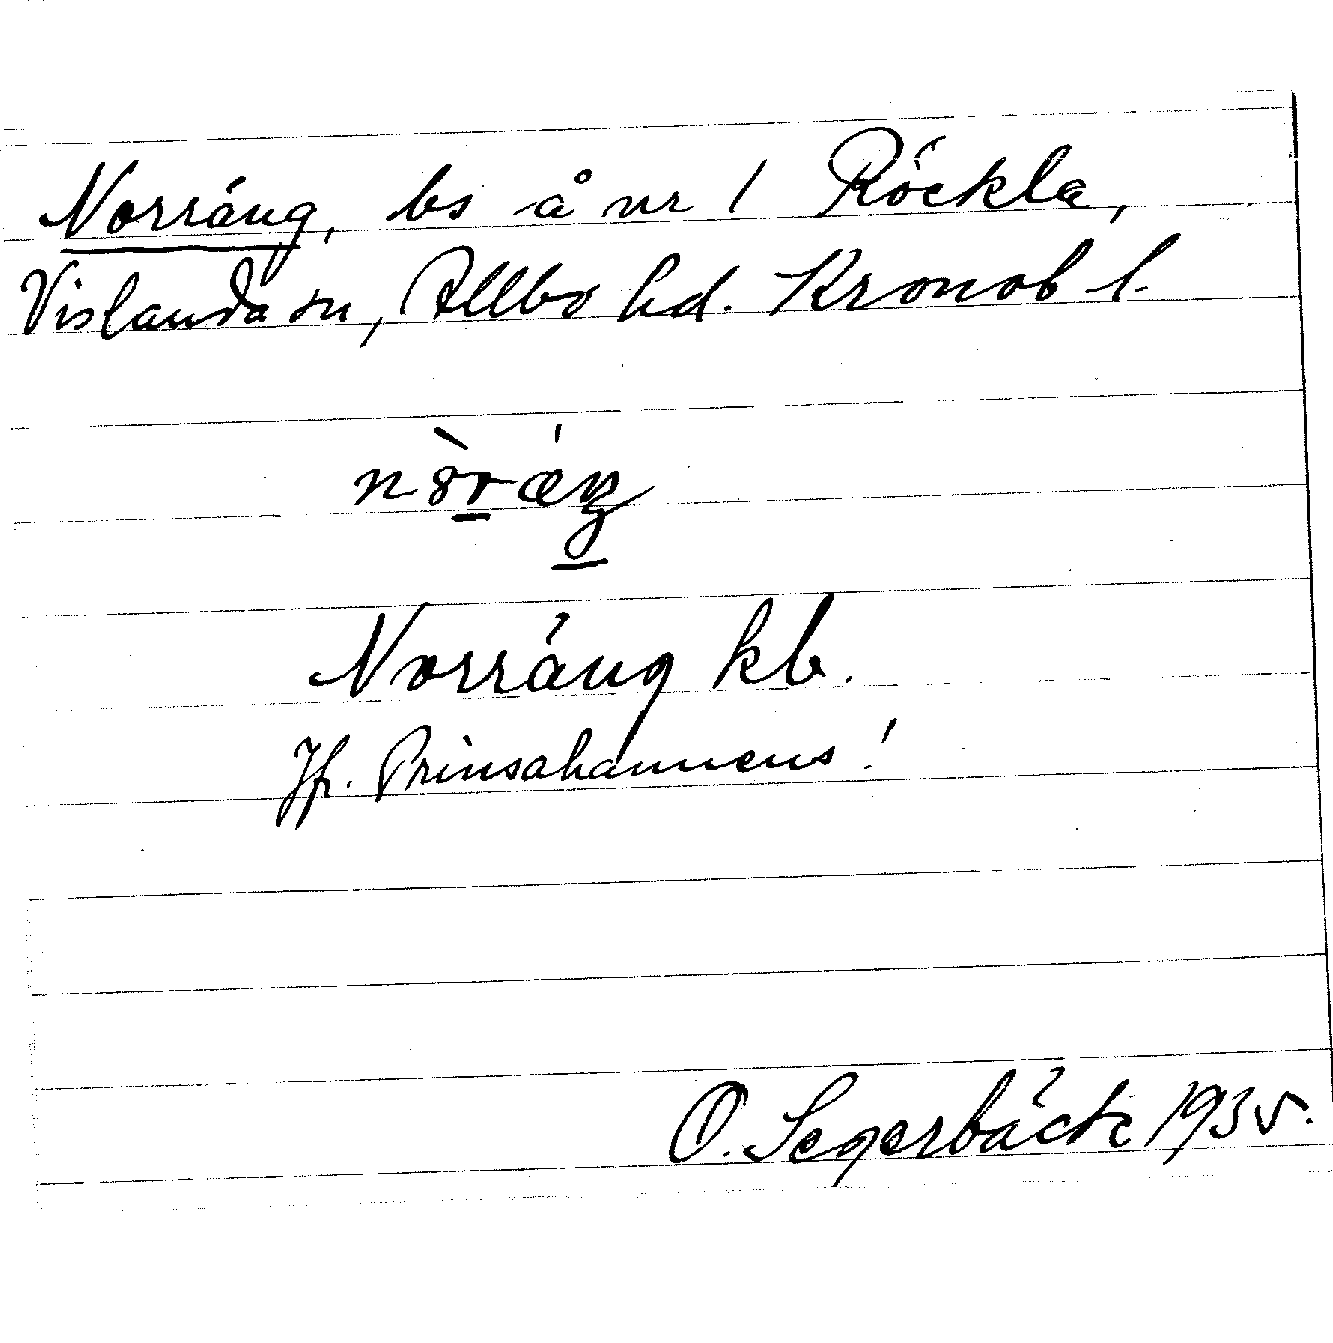 Norräng, bs å nr 1 Röckla,
Vislanda sn, Allbo hd. Kronob l.
Norräng kb.
Jfr. Prinsahannens!
O. Segerbäck 1935.